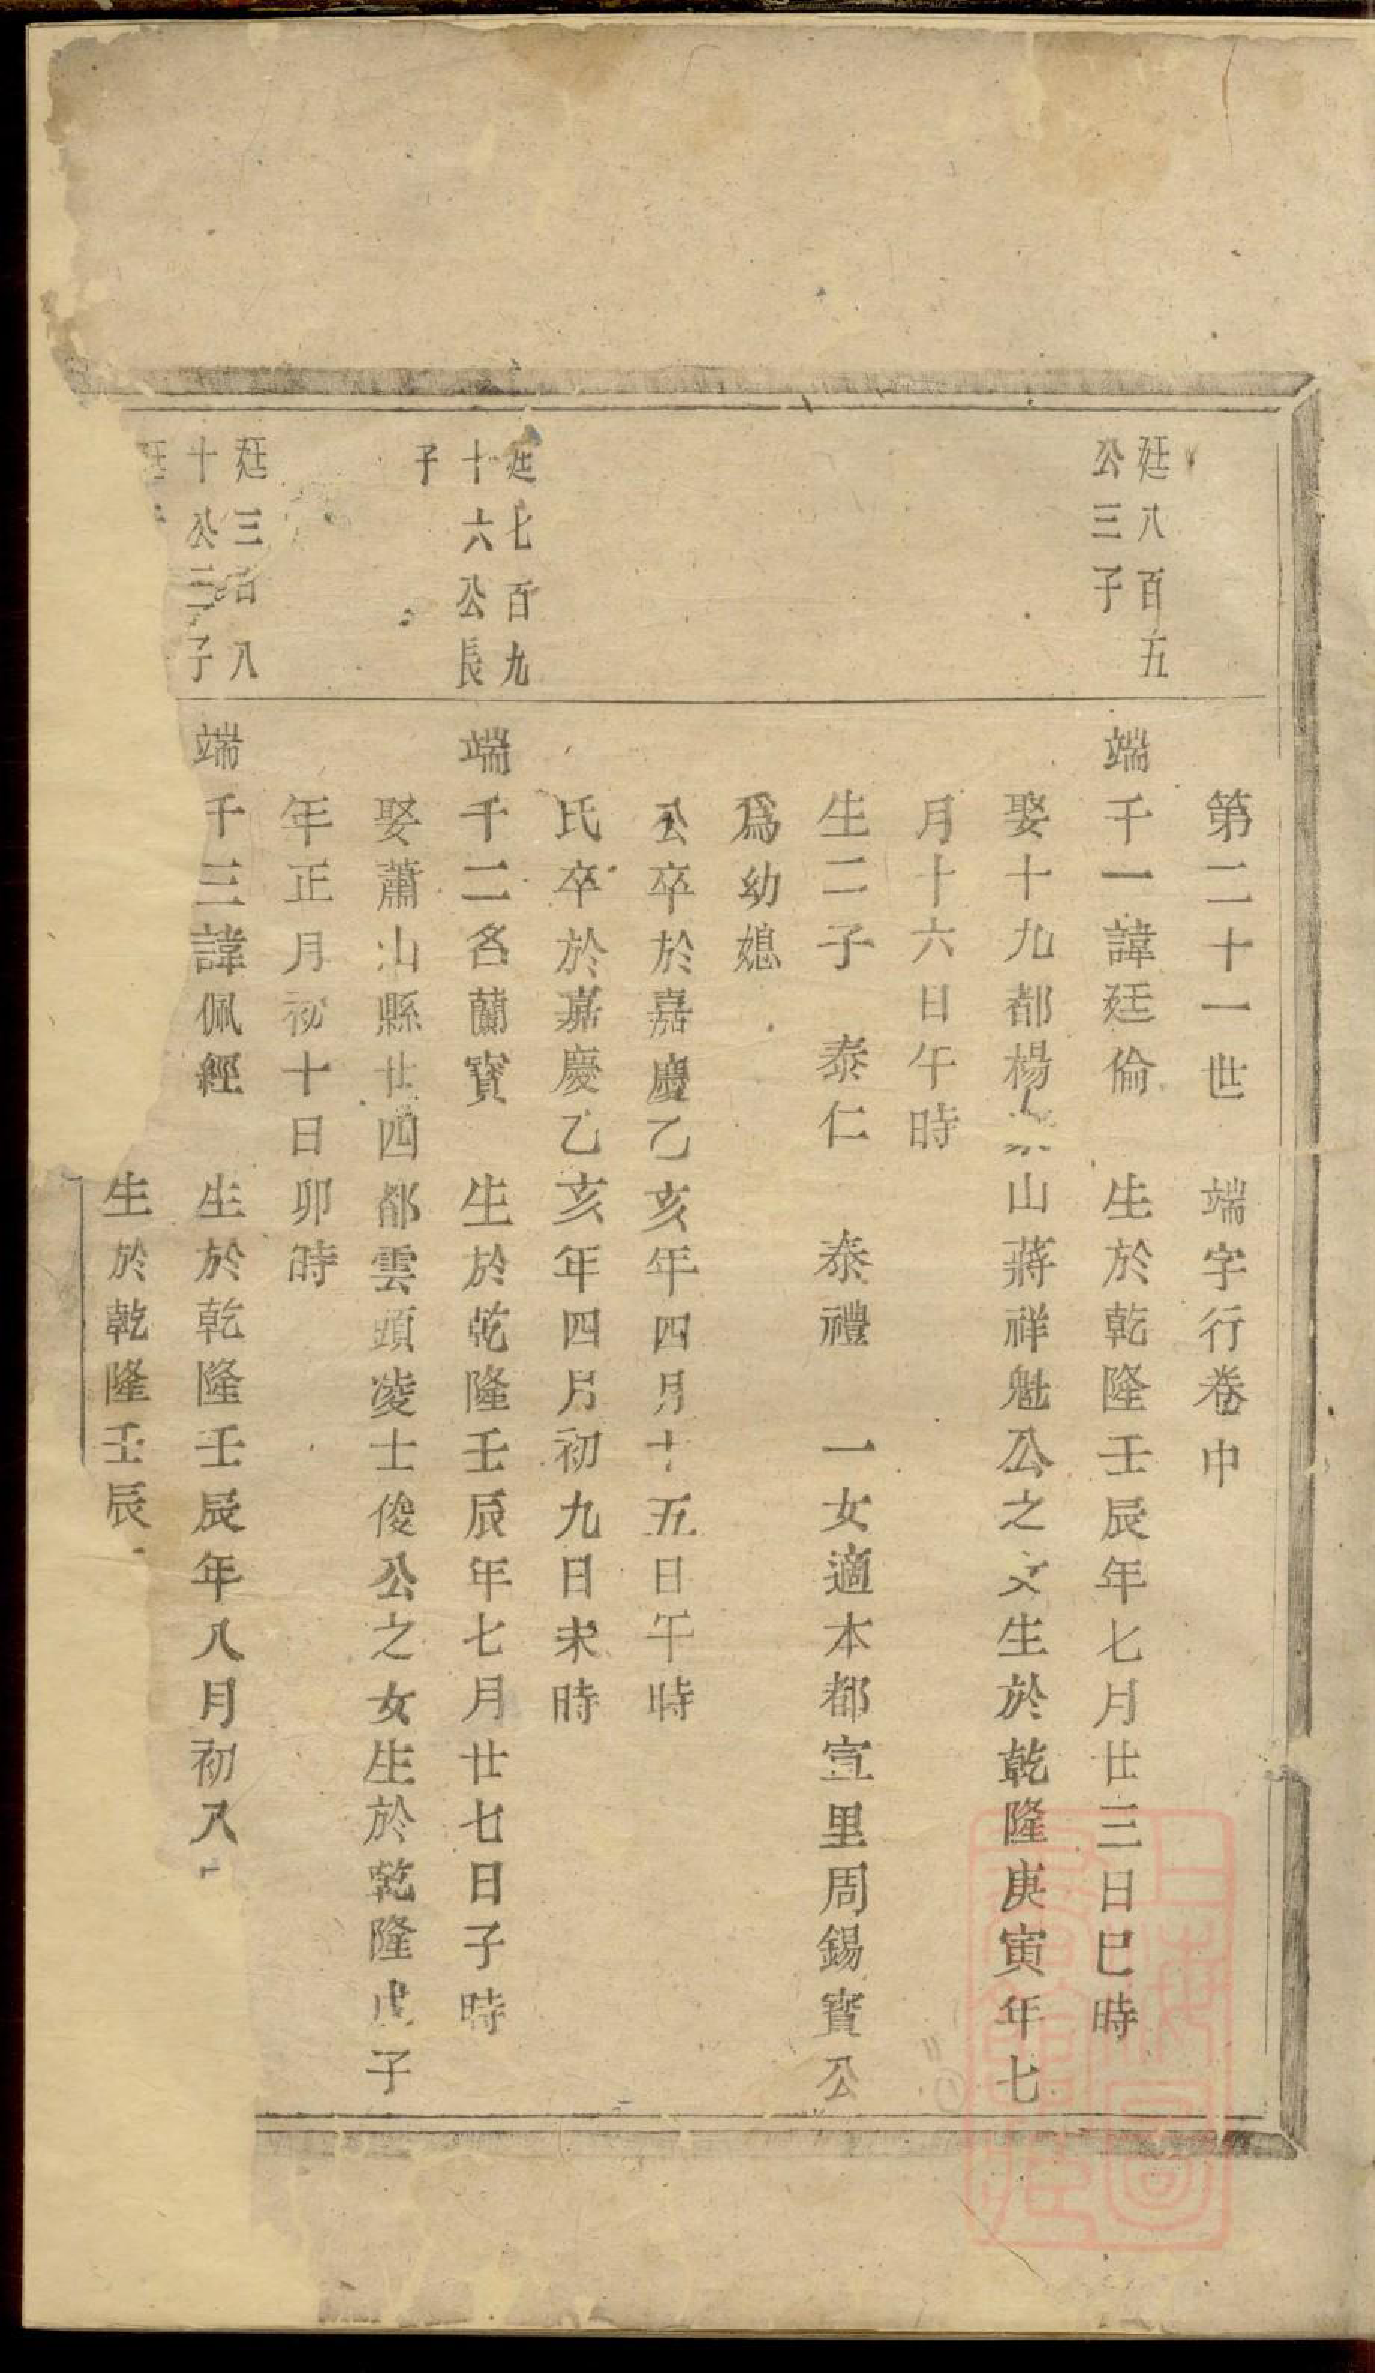 第二十一世　端字行卷中
廷八百五
公三子
端千一諱廷倫　生於乾隆壬辰年七月廿三日巳時
娶十九都楊山蔣祥魁公之女生於乾隆庚寅年七
月十六日午時
生二子　泰仁　泰禮　一女適本都宣里周錫寶公
爲幼媳
公卒於嘉慶乙亥年四月十五日午時
氏卒於嘉慶乙亥年四月初九日未時
廷七百九
十六公長
子
端千二名蘭寳　生於乾隆壬辰年七月廿七日子時
娶蕭山縣廿四都雲頭凌士俊公之女生於乾隆戊子
年正月初十日卯時
廷三百八
十公二子
端千三諱佩經　生於乾隆壬辰年八月初八
廷
生於乾隆壬辰
上海圖書館藏